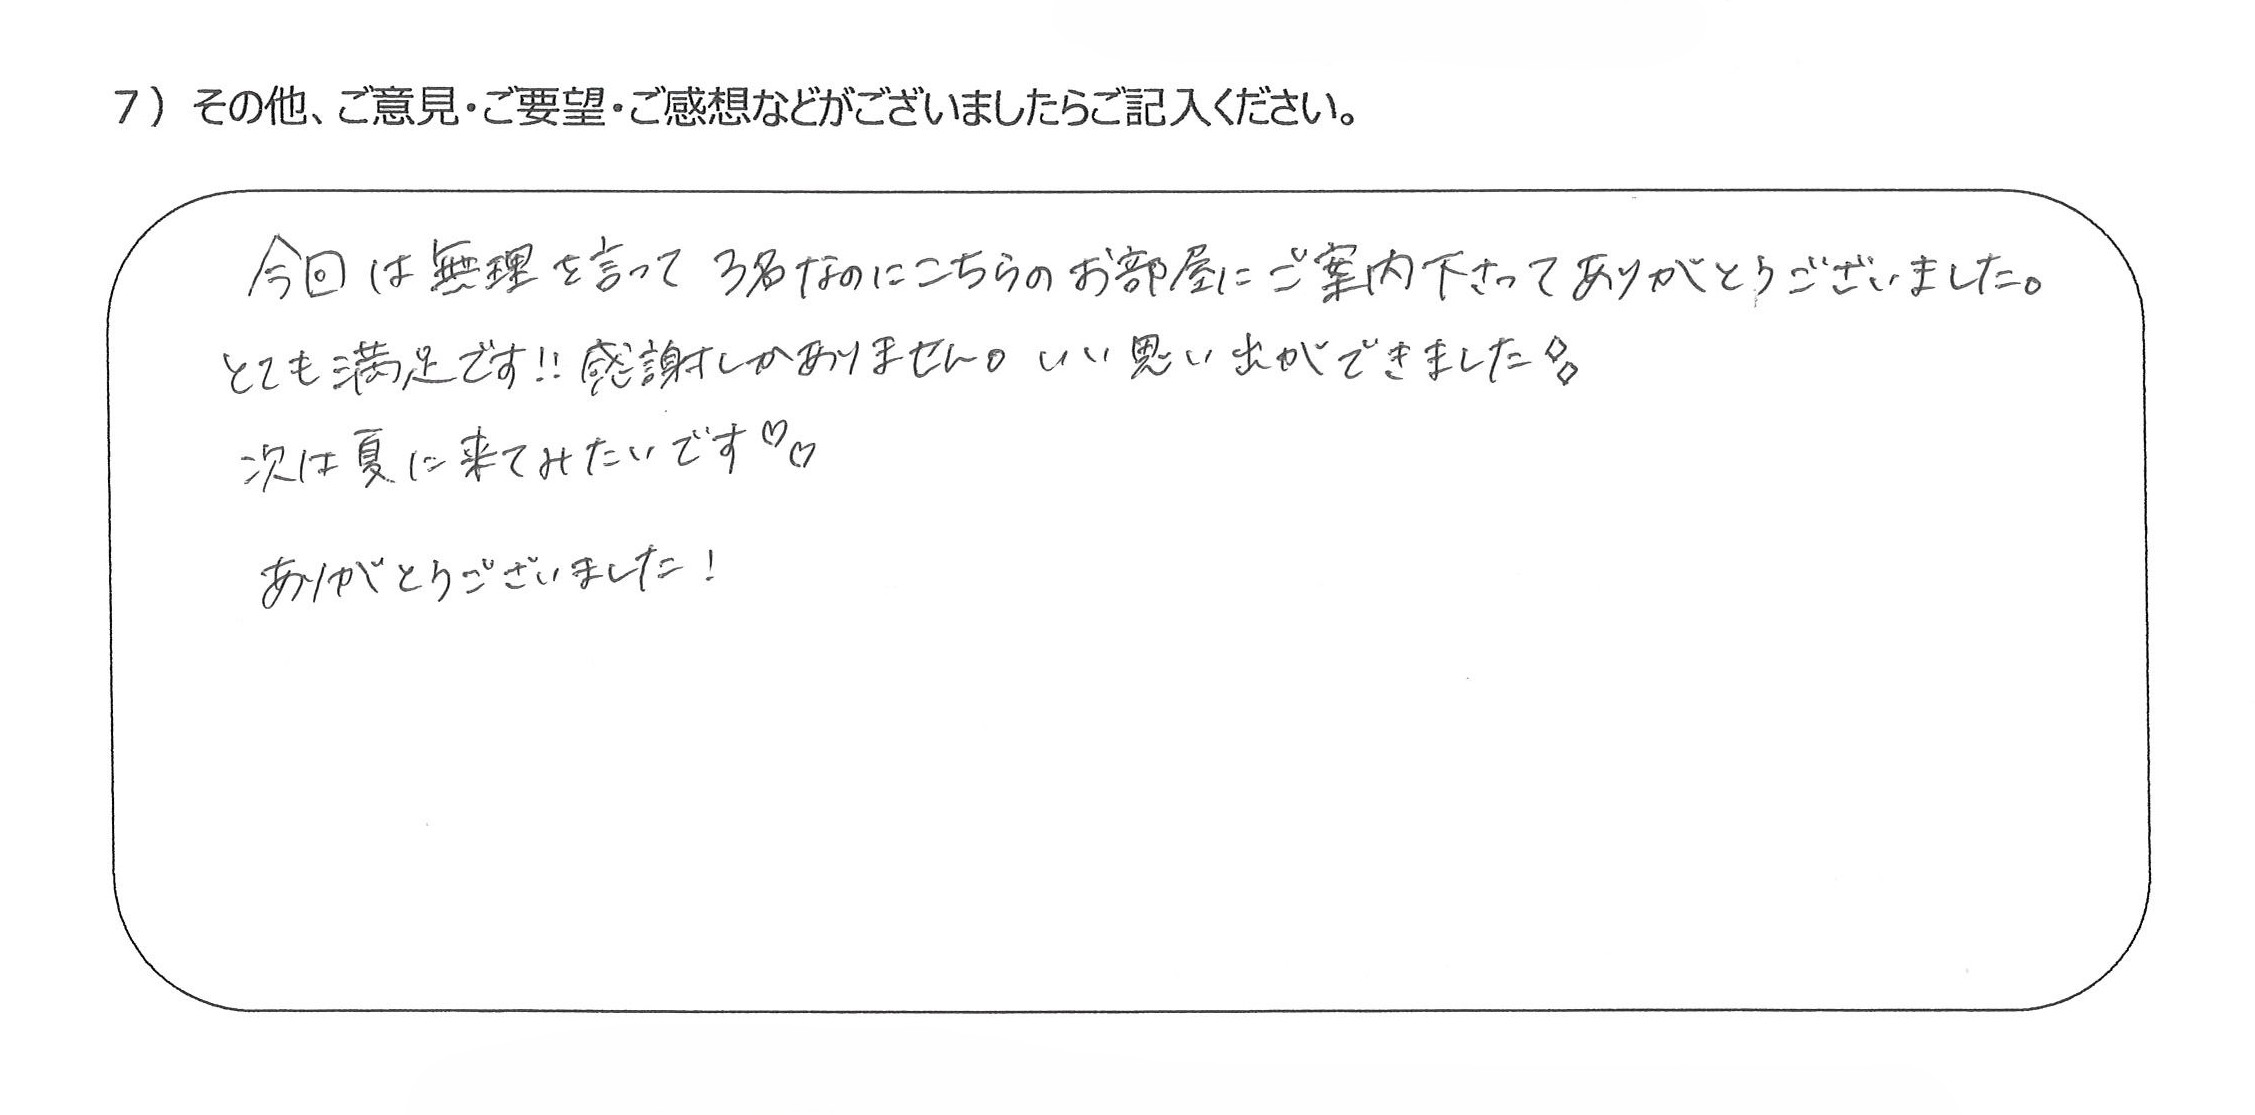 7）その他、ご意見・ご要望・ご感想などがございましたらご記入ください。
今回は無理を言って3名なのにこちらのお部屋にご案内下さってありがとうございました。
とても満足です!!感謝しかありません。いい思い出ができました◇◇
次は夏に来てみたいです♡♡
ありがとうございました！